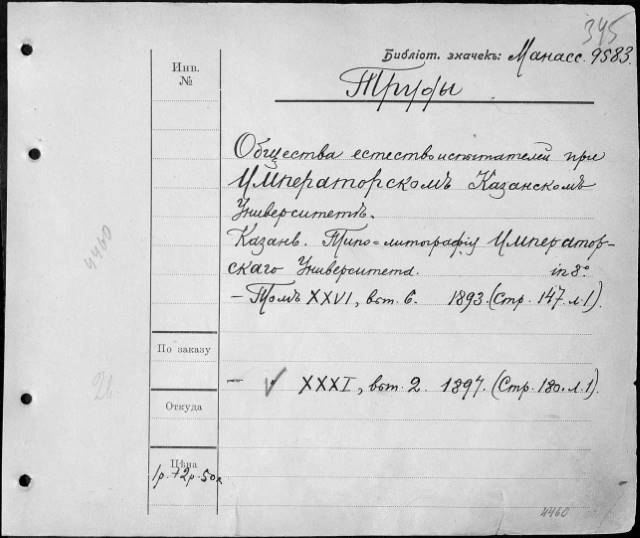 345
Библіот. значекъ: Манасс. 9583.
Инв.
№
Труды
Общества естествоиспытателей при
Императорскомъ Казанскомъ
Университетѣ.
Казань. Типо-литографія Император-
скаго Университета. in 8°
— Томъ XXVI, вып. 6. 1893. (Стр. 147. л. 1).
4460
По заказу
— XXXI, вып. 2. 1897. (Стр. 180. л. 1).
Откуда
Цѣна
4460